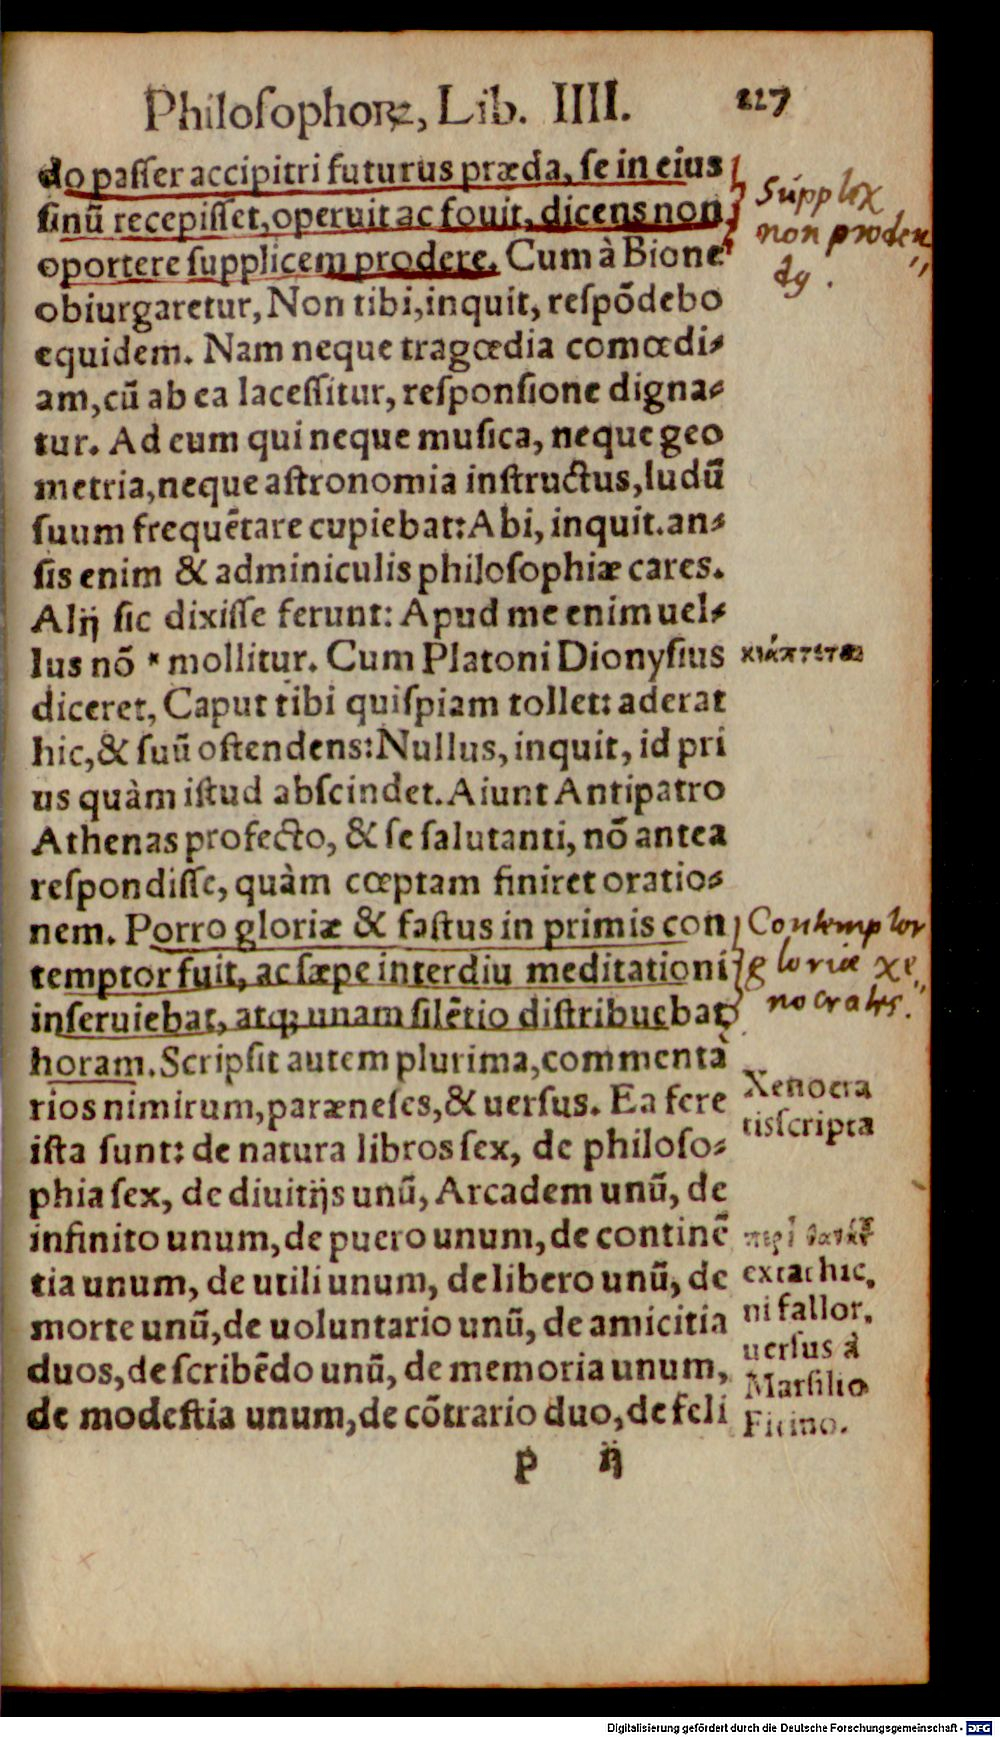 Philosophorꝝ, Lib. IIII. 227
do passer accipitri futurus præda, se in eius
sinũ recepisset, operuit ac fouit, dicens non
oportere supplicem prodere. Cum à Bione
Supplex
non proden
dꝯ.
obiurgaretur, Non tibi, inquit, respõdebo
equidem. Nam neque tragœdia comœdi-
am, cũ ab ea lacessitur, responsione digna-
tur. Ad eum qui neque musica, neque geo
metria, neque astronomia instructus, ludũ
suum frequẽtare cupiebat: Abi, inquit. an-
sis enim & adminiculis philosophiæ cares.
Alij sic dixisse ferunt: Apud me enim uel-
lus nõ * mollitur. Cum Platoni Dionysius
diceret, Caput tibi quispiam tollet: aderat
hic, & suũ ostendens: Nullus, inquit, id pri
us quàm istud abscindet. Aiunt Antipatro
Athenas profecto, & se salutanti, nõ antea
respondisse, quàm cœptam finiret oratio-
nem. Porro gloriæ & fastus in primis con
temptor fuit, ac sæpe interdiu meditationi
inseruiebat, atq; unam silẽtio distribuebat
Contemptor
gloriæ Xe,,
nocrates.
horam. Scripsit autem plurima, commentà
rios nimirum, paræneses, & uersus. Ea fere
ista sunt: de natura libros sex, de philoso-
Xenocra
tis scripta
phia sex, de diuitijs unũ, Arcadem unũ, de
infinito unum, de puero unum, de continẽ
tia unum, de utili unum, de libero unũ, de
morte unũ, de uoluntario unũ, de amicitia
duos, de scribẽdo unũ, de memoria unum,
de modestia unum, de cõtrario duo, de feli
extat hic,
ni fallor,
uersus à
Marsilio
Ficino.
p ij
Digitalisierung gefördert durch die Deutsche Forschungsgemeinschaft - DFG